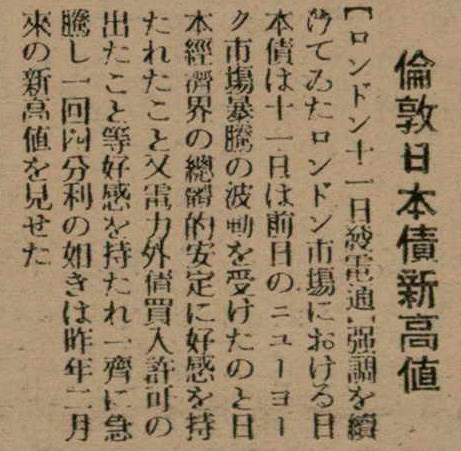 倫敦日本債新高値
【ロンドン十一日發電通】强調を續
けてゐたロンドン市場における日
本債は十一日は前日のニューヨー
ク市場暴騰の波動を受けたのと日
本經濟界の總體的安定に好感を持
たれたこと又電力外債買入許可の
出たこと等好感を持たれ一齊に急
騰し一回四分利の如きは昨年二月
來の新高値を見せた